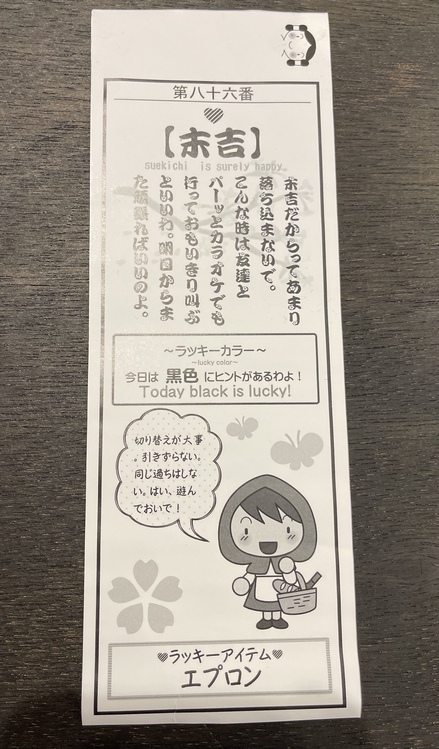 第八十六番
【末吉】
suekichi is surely happy.
末吉だからってあまり
落ち込まないで。
こんな時は友達と
パーッとカラオケでも
行っておもいきり叫ぶ
といいわ。明日からま
た頑張ればいいのよ。
~ラッキーカラー~
~lucky color~
今日は 黒色 にヒントがあるわよ!
Today black is lucky!
切り替えが大事
。引きずらない。
同じ過ちはしな
い。はい、遊ん
でおいで!
ラッキーアイテム
エプロン